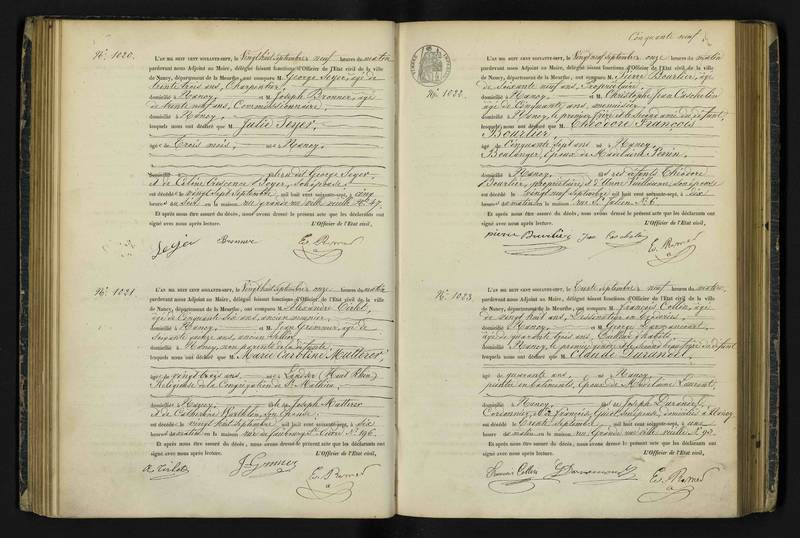 N° 1020.
L'AN MIL HUIT CENT SOIXANTE-SEPT, le Vingt huit septembre neuf heures du matin
pardevant nous Adjoint au Maire, délégué faisant fonctions d'Officier de l'Etat civil de la ville
de Nancy, département de la Meurthe, ont comparu M. George Seyer, âgé de
trente trois ans, Charpentier,
domicilié à Nancy, et M. Joseph Bronner, âgé
de trente neuf ans, Commissionnaire,
domicilié à Nancy,
lesquels nous ont déclaré que M. Julie Seyer,
âgé de Trois mois, né à Nancy,
domicilié à dit George Seyer,
et de Crescence Boyer, son épouse
est décédé le vingt sept septembre mil huit cent soixante-sept, à cinq
heures du soir en la maison rue grande ville vieille N° 47,
Et après nous être assuré du décès, nous avons dressé le présent acte que les déclarants ont
signé avec nous après lecture. L'Officier de l'Etat civil,
Seyer Bronner
N° 1021.
L'AN MIL HUIT CENT SOIXANTE-SEPT, le Vingt huit septembre onze heures du matin
pardevant nous Adjoint au Maire, délégué faisant fonctions d'Officier de l'Etat civil de la ville
de Nancy, département de la Meurthe, ont comparu M. Alexandre
âgé de Cinquante six ans, ancien
domicilié à Nancy, et M. Jean Gremmer, âgé de
Soixante quatre ans, ancien Sellier
domicilié à Nancy, non parents de la défunte,
lesquels nous ont déclaré que M. Marie Caroline Mutterer,
âgé de vingt trois ans, né à Landser (Haut Rhin)
Religieuse de la Congrégation de St. Mathieu,
domicilié à Nancy, Joseph Mutterer
et de Catherine son épouse,
est décédé le vingt huit septembre mil huit cent soixante-sept, à six
heures du matin en la maison rue du faubourg St. N° 196,
Et après nous être assuré du décès, nous avons dressé le présent acte que les déclarants ont
signé avec nous après lecture. L'Officier de l'Etat civil,
Cinquante neuf
N° 1022.
L'AN MIL HUIT CENT SOIXANTE-SEPT, le Vingt neuf septembre onze heures du matin
pardevant nous Adjoint au Maire, délégué faisant fonctions d'Officier de l'Etat civil de la ville
de Nancy, département de la Meurthe, ont comparu M. Pierre Bourlier, âgé
de Soixante neuf ans, Propriétaire,
domicilié à Nancy, et M. Christophe Jean
âgé de Cinquante ans, menuisier,
domicilié à Nancy, le premier frère et le second ami du défunt,
lesquels nous ont déclaré que M. Théodore François
Bourlier,
âgé de Cinquante sept ans né à Nancy,
Boulanger, époux de Perrin,
domicilié à Nancy, défunts Théodore
Bourlier, propriétaire et d'Anne son épouse
est décédé le vingt neuf septembre mil huit cent soixante-sept, à six
heures du matin en la maison rue St. Julien N° 6,
Et après nous être assuré du décès, nous avons dressé le présent acte que les déclarants ont
signé avec nous après lecture. L'Officier de l'Etat civil,
pierre Bourlier Jean
N° 1023.
L'AN MIL HUIT CENT SOIXANTE-SEPT, le Trente septembre neuf heures du matin,
pardevant nous Adjoint au Maire, délégué faisant fonctions d'Officier de l'Etat civil de la ville
de Nancy, département de la Meurthe, ont comparu M. François Collin, âgé
de vingt huit ans, Dessinateur en broderies,
domicilié à Nancy, et M. George Darmancourt,
âgé de quarante trois ans, Tailleur d'habits,
domicilié à Nancy, le premier gendre et le second beau frère du défunt
lesquels nous ont déclaré que M. Claude Durandel,
âgé de quarante ans, né à Nancy,
peintre en bâtiments, Epoux de Laurent,
domicilié à Nancy, Joseph Durandel,
Cordonnier, et de Françoise domiciliés à Nancy
est décédé le Trente septembre mil huit cent soixante-sept, à une
heure du matin en la maison rue Grande ville vieille N° 92,
Et après nous être assuré du décès, nous avons dressé le présent acte que les déclarants ont
signé avec nous après lecture. L'Officier de l'Etat civil,
Francois Collin